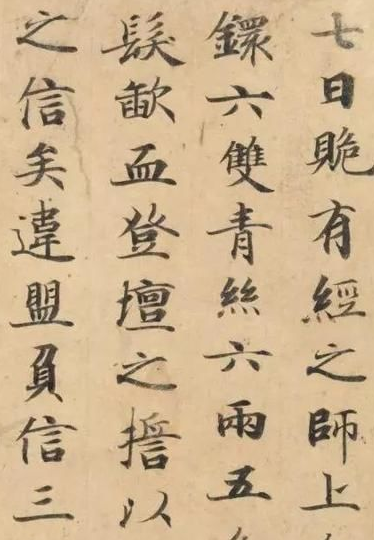 七日有經之師上
鐶六雙青絲六兩五
髮歃血登壇之誓以
之信矣違盟負信三